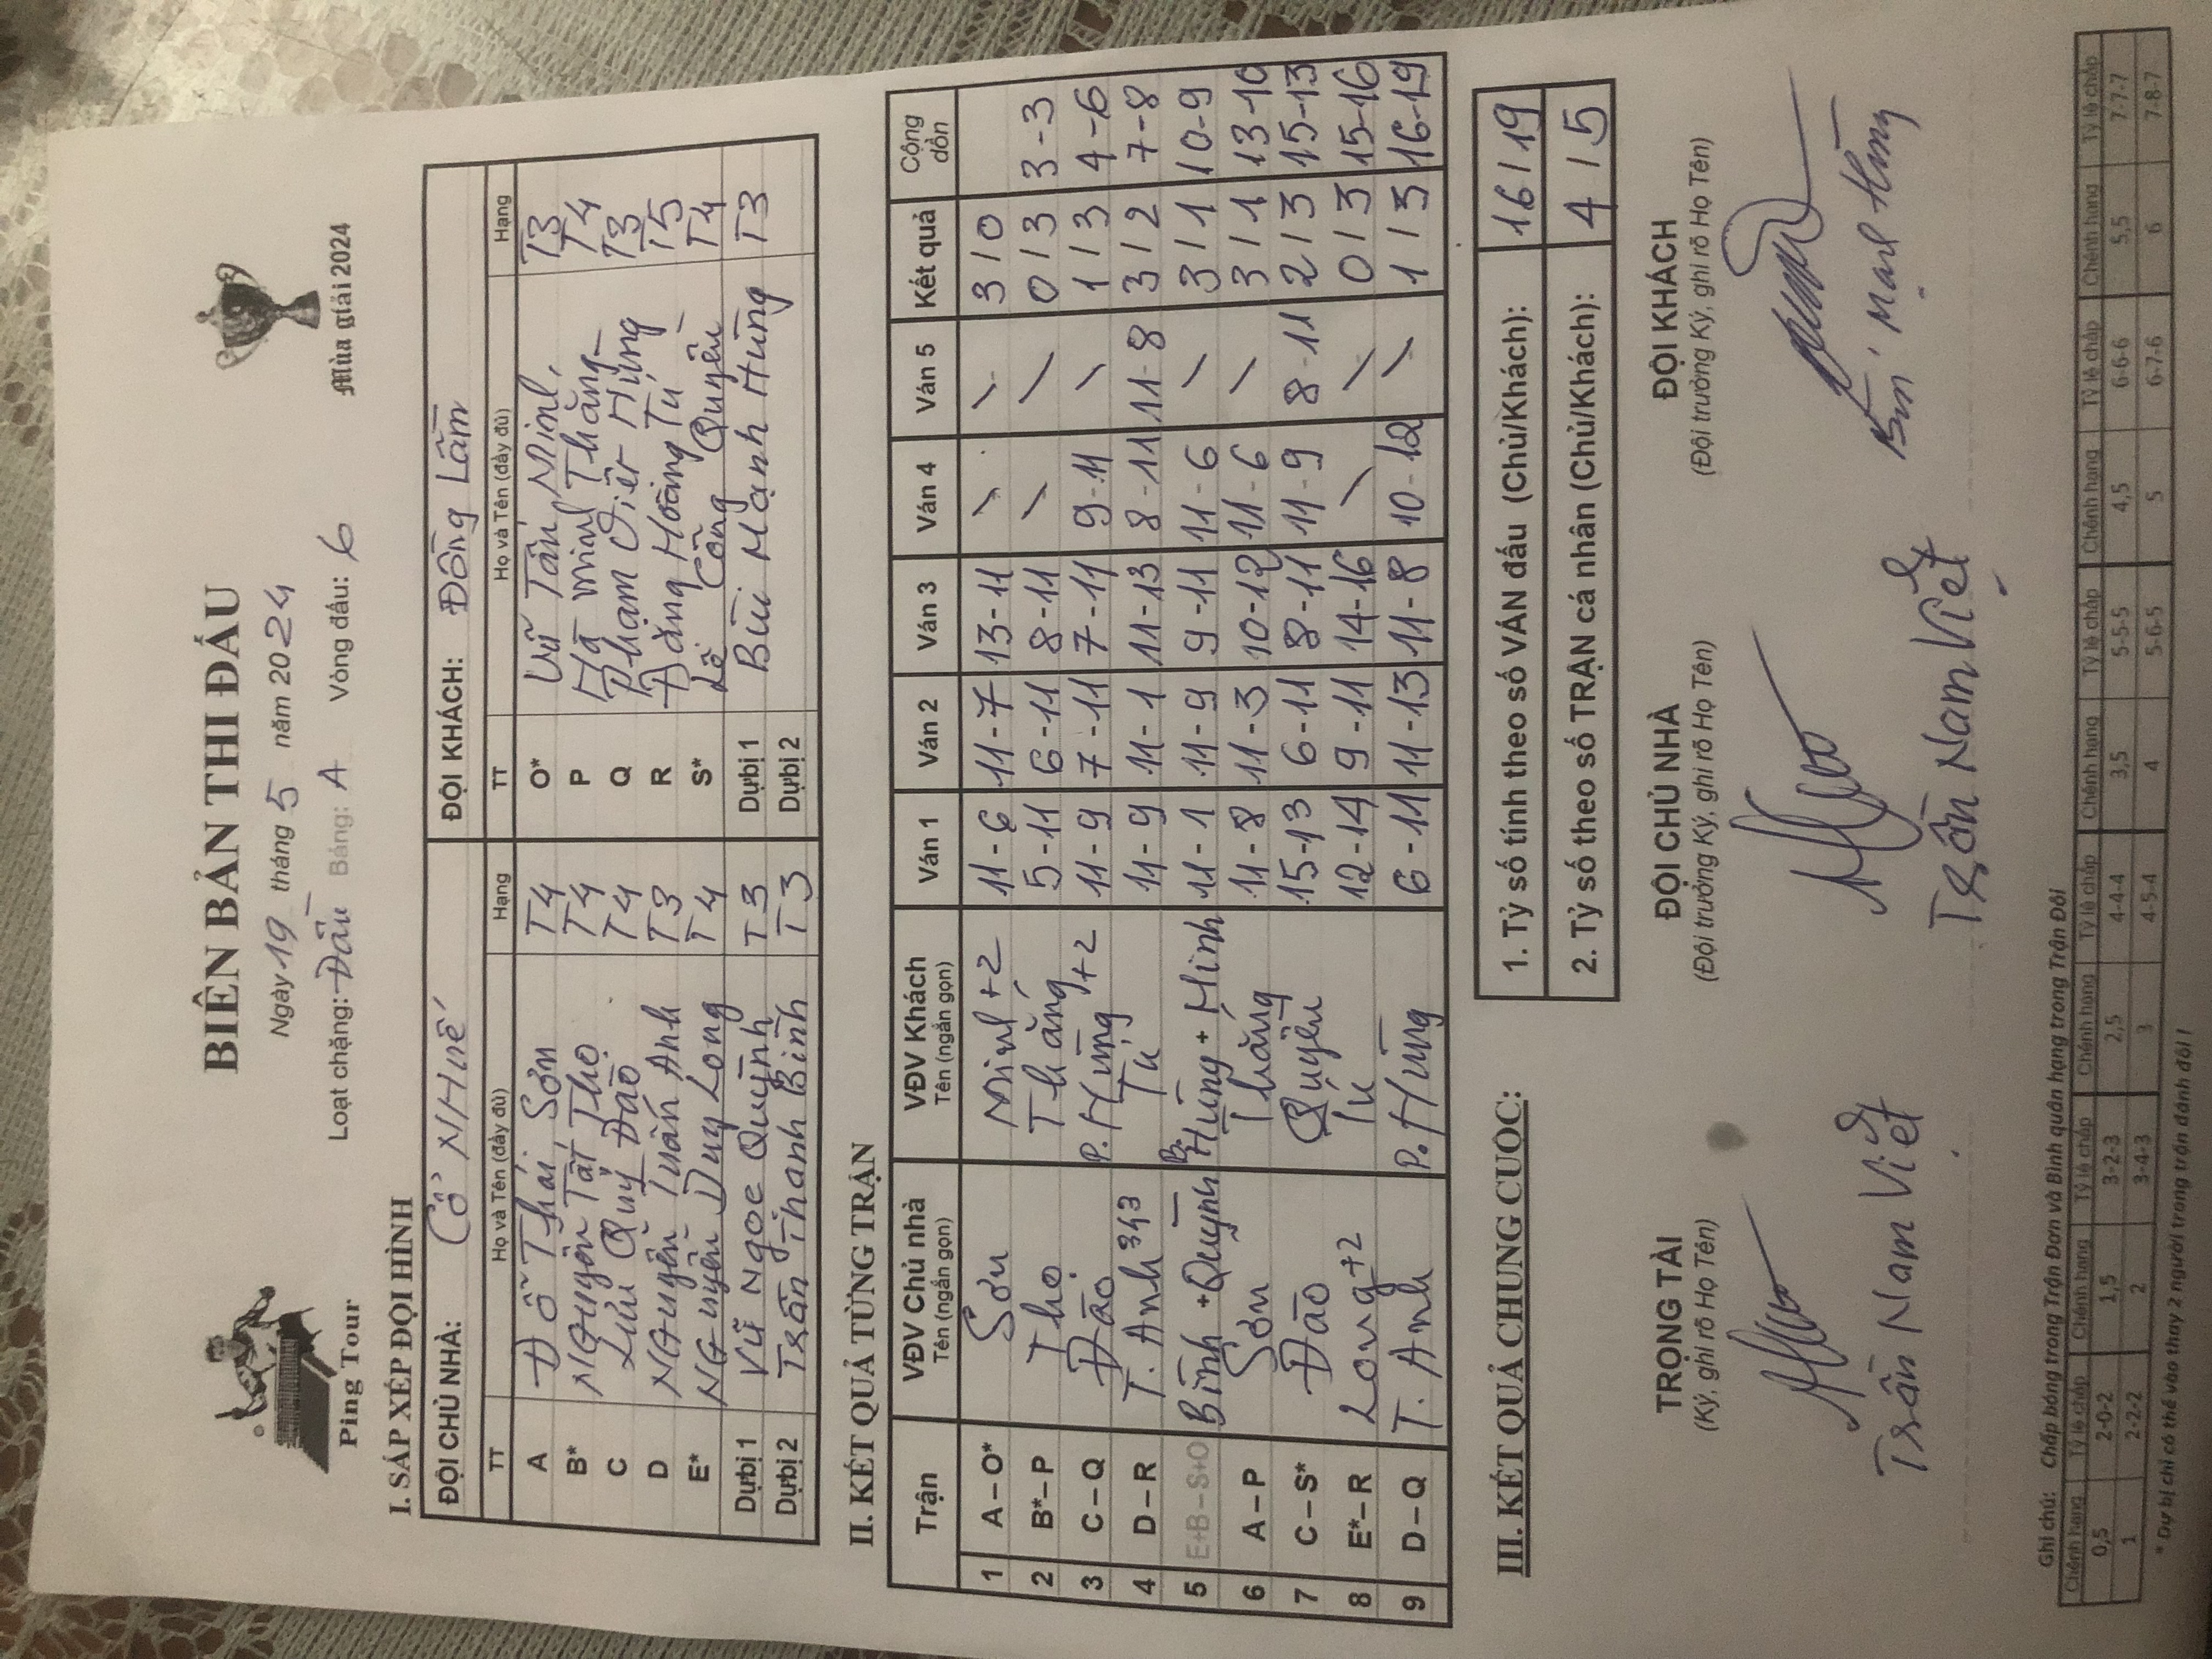 Ping Tour
BIÊN BẢN THI ĐẤU
Ngày 19 tháng 5 năm 2024
Loạt chặng: Đấu Bảng: A Vòng đấu: 6
Mùa giải 2024
I. SẮP XẾP ĐỘI HÌNH
ĐỘI CHỦ NHÀ: Cổ Nhuế ĐỘI KHÁCH: Đồng Lầm
TT Họ và Tên (đầy đủ) Hạng TT Họ và Tên (đầy đủ) Hạng
A Đỗ Thái Sơn T4 O* Vũ Tấn Minh T3
B* Nguyễn Tất Thọ T4 P Hà Minh Thắng T4
C Lưu Quý Đào T4 Q Phạm Việt Hùng T3
D Nguyễn Tuấn Anh T3 R Đặng Hoàng Tú T5
E* Nguyễn Duy Long T4 S* Lê Công Quyền T4
Dự bị 1 Vũ Ngọc Quỳnh T3 Dự bị 1 Bùi Mạnh Hùng T3
Dự bị 2 Trần Thanh Bình T3 Dự bị 2
II. KẾT QUẢ TỪNG TRẬN
Trận VĐV Chủ nhà Tên (ngắn gọn) VĐV Khách Tên (ngắn gọn) Ván 1 Ván 2 Ván 3 Ván 4 Ván 5 Kết quả Cộng dồn
1 A – O* Sơn Minh +2 11-6 11-7 13-11 \ \ 3/0
2 B* – P Thọ Thắng 5-11 6-11 8-11 \ \ 0/3 3-3
3 C – Q Đào P. Hùng +2 11-9 7-11 7-11 9-11 \ 1/3 4-6
4 D – R T. Anh 343 Tú 11-9 11-1 11-13 8-11 11-8 3/2 7-8
5 E+B – S+O Bình + Quỳnh B. Hùng + Minh 11-1 11-9 9-11 11-6 \ 3/1 10-9
6 A – P Sơn Thắng 11-8 11-3 10-12 11-6 \ 3/1 13-10
7 C – S* Đào Quyền 15-13 6-11 8-11 11-9 8-11 2/3 15-13
8 E* – R Long +2 Tú 12-14 9-11 14-16 \ \ 0/3 15-16
9 D – Q T. Anh P. Hùng 6-11 11-13 11-8 10-12 \ 1/3 16-19
III. KẾT QUẢ CHUNG CUỘC:
1. Tỷ số tính theo số VÁN đấu (Chủ/Khách): 16/19
2. Tỷ số theo số TRẬN cá nhân (Chủ/Khách): 4/5
TRỌNG TÀI ĐỘI CHỦ NHÀ ĐỘI KHÁCH
(Ký, ghi rõ Họ Tên) (Đội trưởng Ký, ghi rõ Họ Tên) (Đội trưởng Ký, ghi rõ Họ Tên)
Trần Nam Việt Trần Nam Việt Bùi Mạnh Hùng
Ghi chú: Chấp bóng trong Trận Đơn và Bình quân hạng trong Trận Đôi
Chênh hạng Tỷ lệ chấp Chênh hạng Tỷ lệ chấp Chênh hạng Tỷ lệ chấp Chênh hạng Tỷ lệ chấp Chênh hạng Tỷ lệ chấp Chênh hạng Tỷ lệ chấp
0,5 2-0-2 1,5 3-2-3 2,5 4-4-4 3,5 5-5-5 4,5 6-6-6 5,5 7-7-7
1 2-2-2 2 3-4-3 3 4-5-4 4 5-6-5 5 6-7-6 6 7-8-7
* Dự bị chỉ có thể vào thay 2 người trong trận đánh đôi !